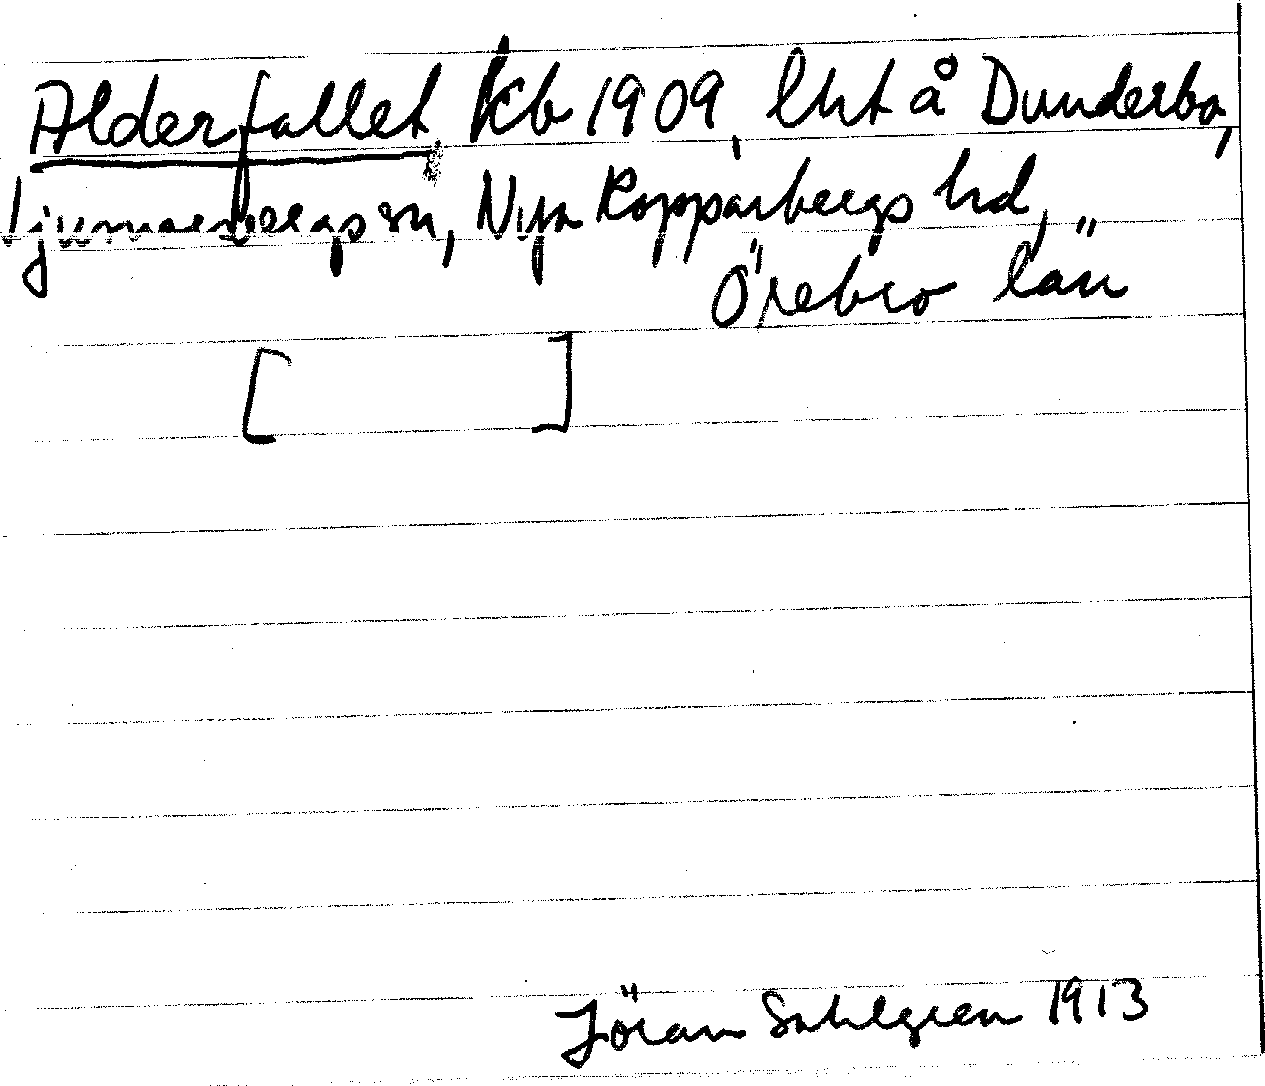 Alderfallet Kb 1909, lht å Dunderbo,
Ljusnarsbergs sn, Nya Kopparbergs hd,
Örebro län
[ ]
Jöran Sahlgren 1913